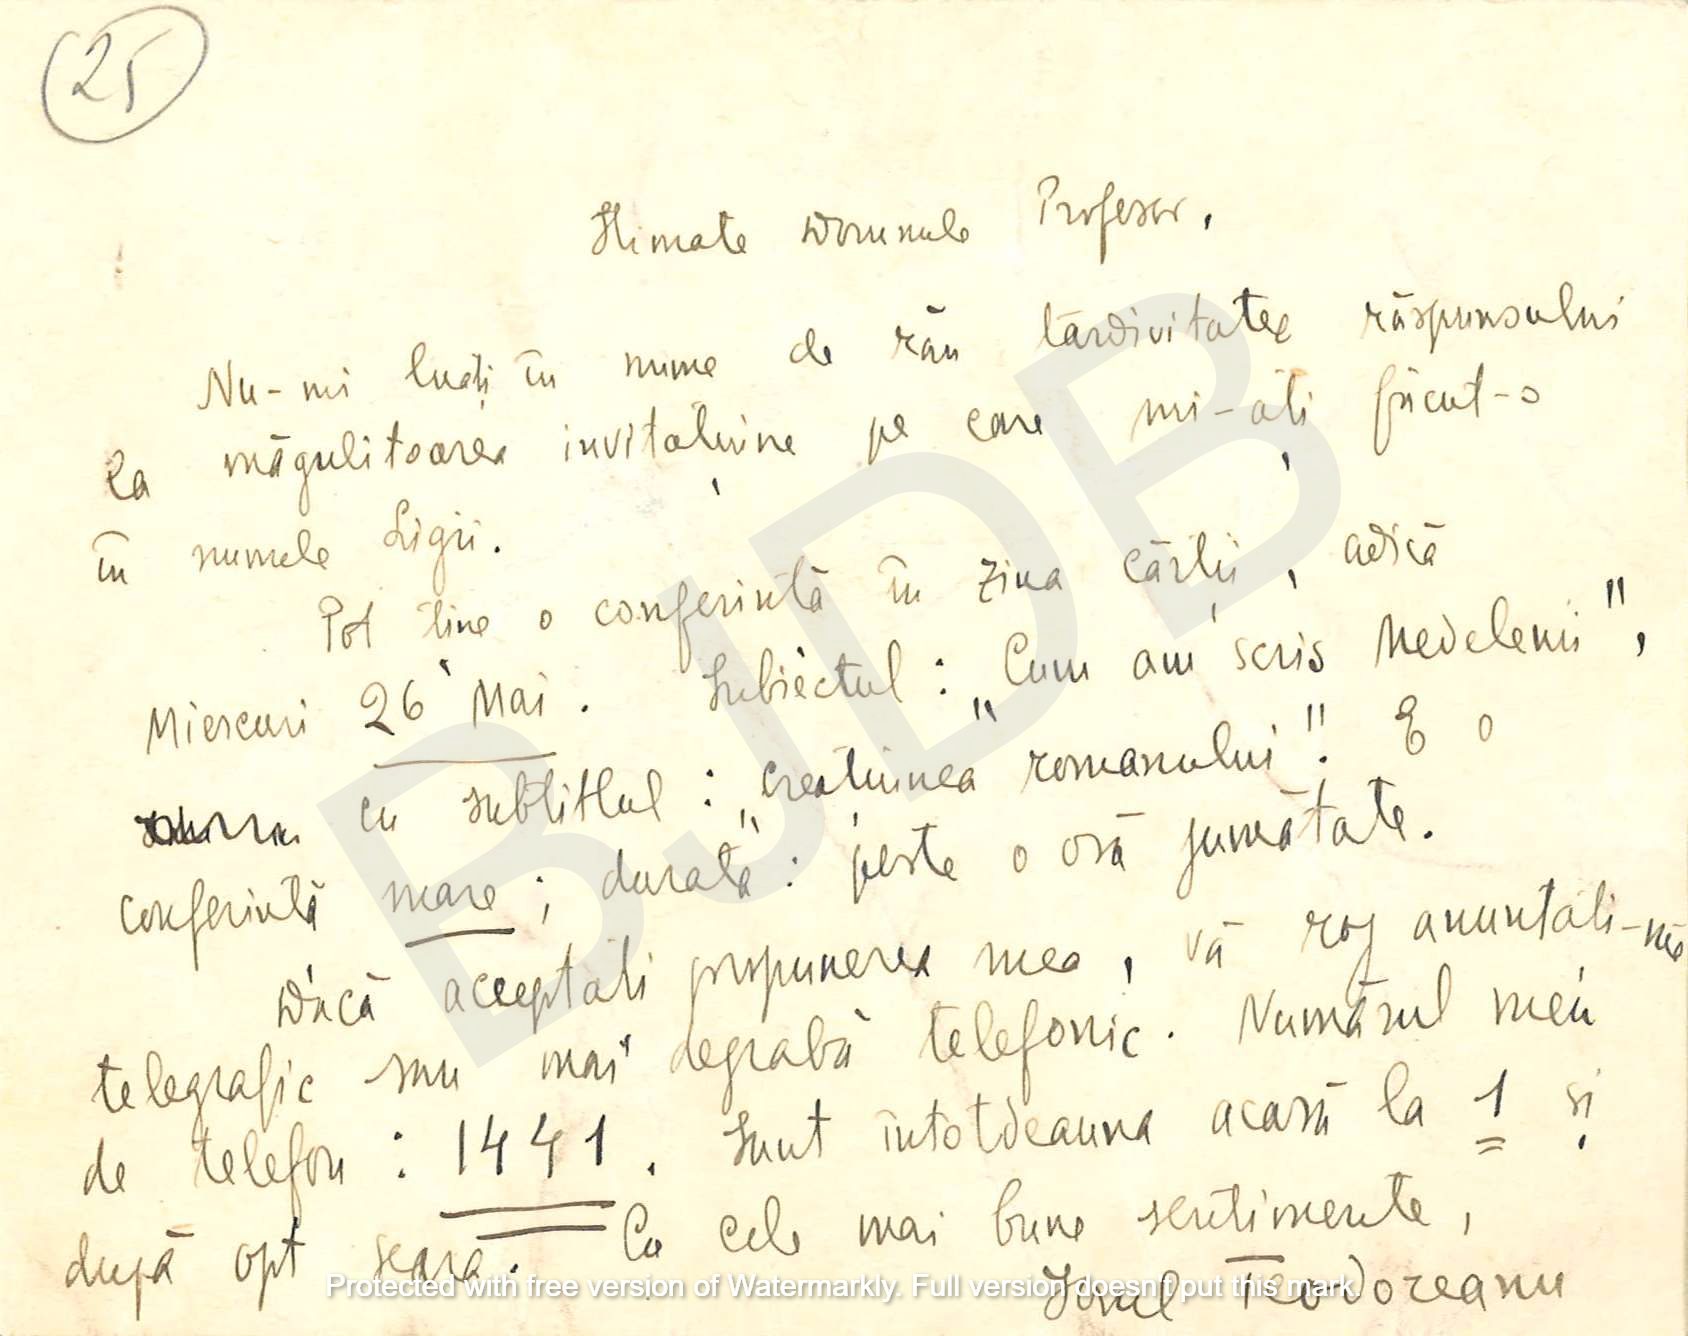 25
Stimate Domnule Profesor,
Nu-mi luați în nume de rău tardivitatea răspunsului
la măgulitoarea invitațiune pe care mi-ați făcut-o
în numele Ligii.
Pot ține o conferință în ziua cărții, adică
Miercuri 26 Mai. Subiectul: „Cum am scris Medelenii",
cu subtitlul: „creațiunea romanului". E o
conferință mare; durata: peste o oră jumătate.
Dacă acceptați propunerea mea, vă rog anunțați-mă
telegrafic sau mai degrabă telefonic. Numărul meu
de telefon: 1441. Sunt întotdeauna acasă la 1 și
după opt seara. Cu cele mai bune sentimente,
Ionel Teodoreanu
BJDB
Protected with free version of Watermarkly. Full version doesn't put this mark.